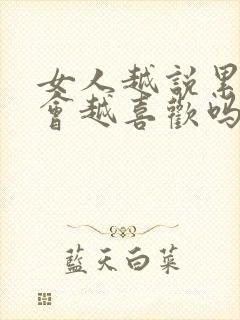 女人越説
會越喜歡嗎
藍天白菜